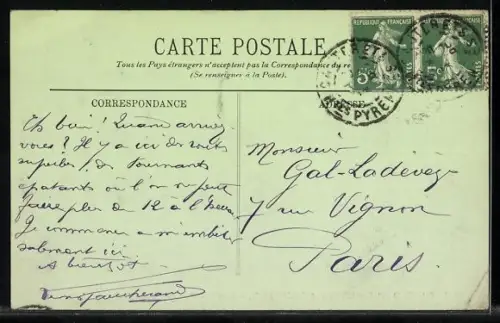 CARTE POSTALE
Tous les Pays étrangers n'acceptent pas la Correspondance du re
(Se renseigner à la Poste).
REPUBLIQUE FRANÇAISE
5c
CAUTERETS
Htes PYRENEES
CORRESPONDANCE
Eh bien! Quand arrivez
vous? Il y a ici des routes
superbes, des tournants
épatants où l'on ne peut
faire plus de 12 à l'heure
Je commence à m'embêter
salement ici
A bientôt
Monsieur
Gal-Ladevèze
7 rue Vignon
Paris.